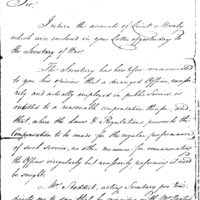 Sir,
I return the accounts of Lieut
which were enclosed in your Letter of yesterday to
the Secretary of War.
The Secretary has heretofore communicated
to you his opinion that a deranged Officer, necessa-
rily and actually employed in public Service, is
entitled to a reasonable compensation therefor, and
that, where the Laws & Regulations prescribe the
Compensation to be made for the regular performance
of such service, no other measure for remunerating
the Officer singularly but necessarily performing it need
be sought.
Mr. Stoddert, acting Secretary pro tem,
directs me to say that